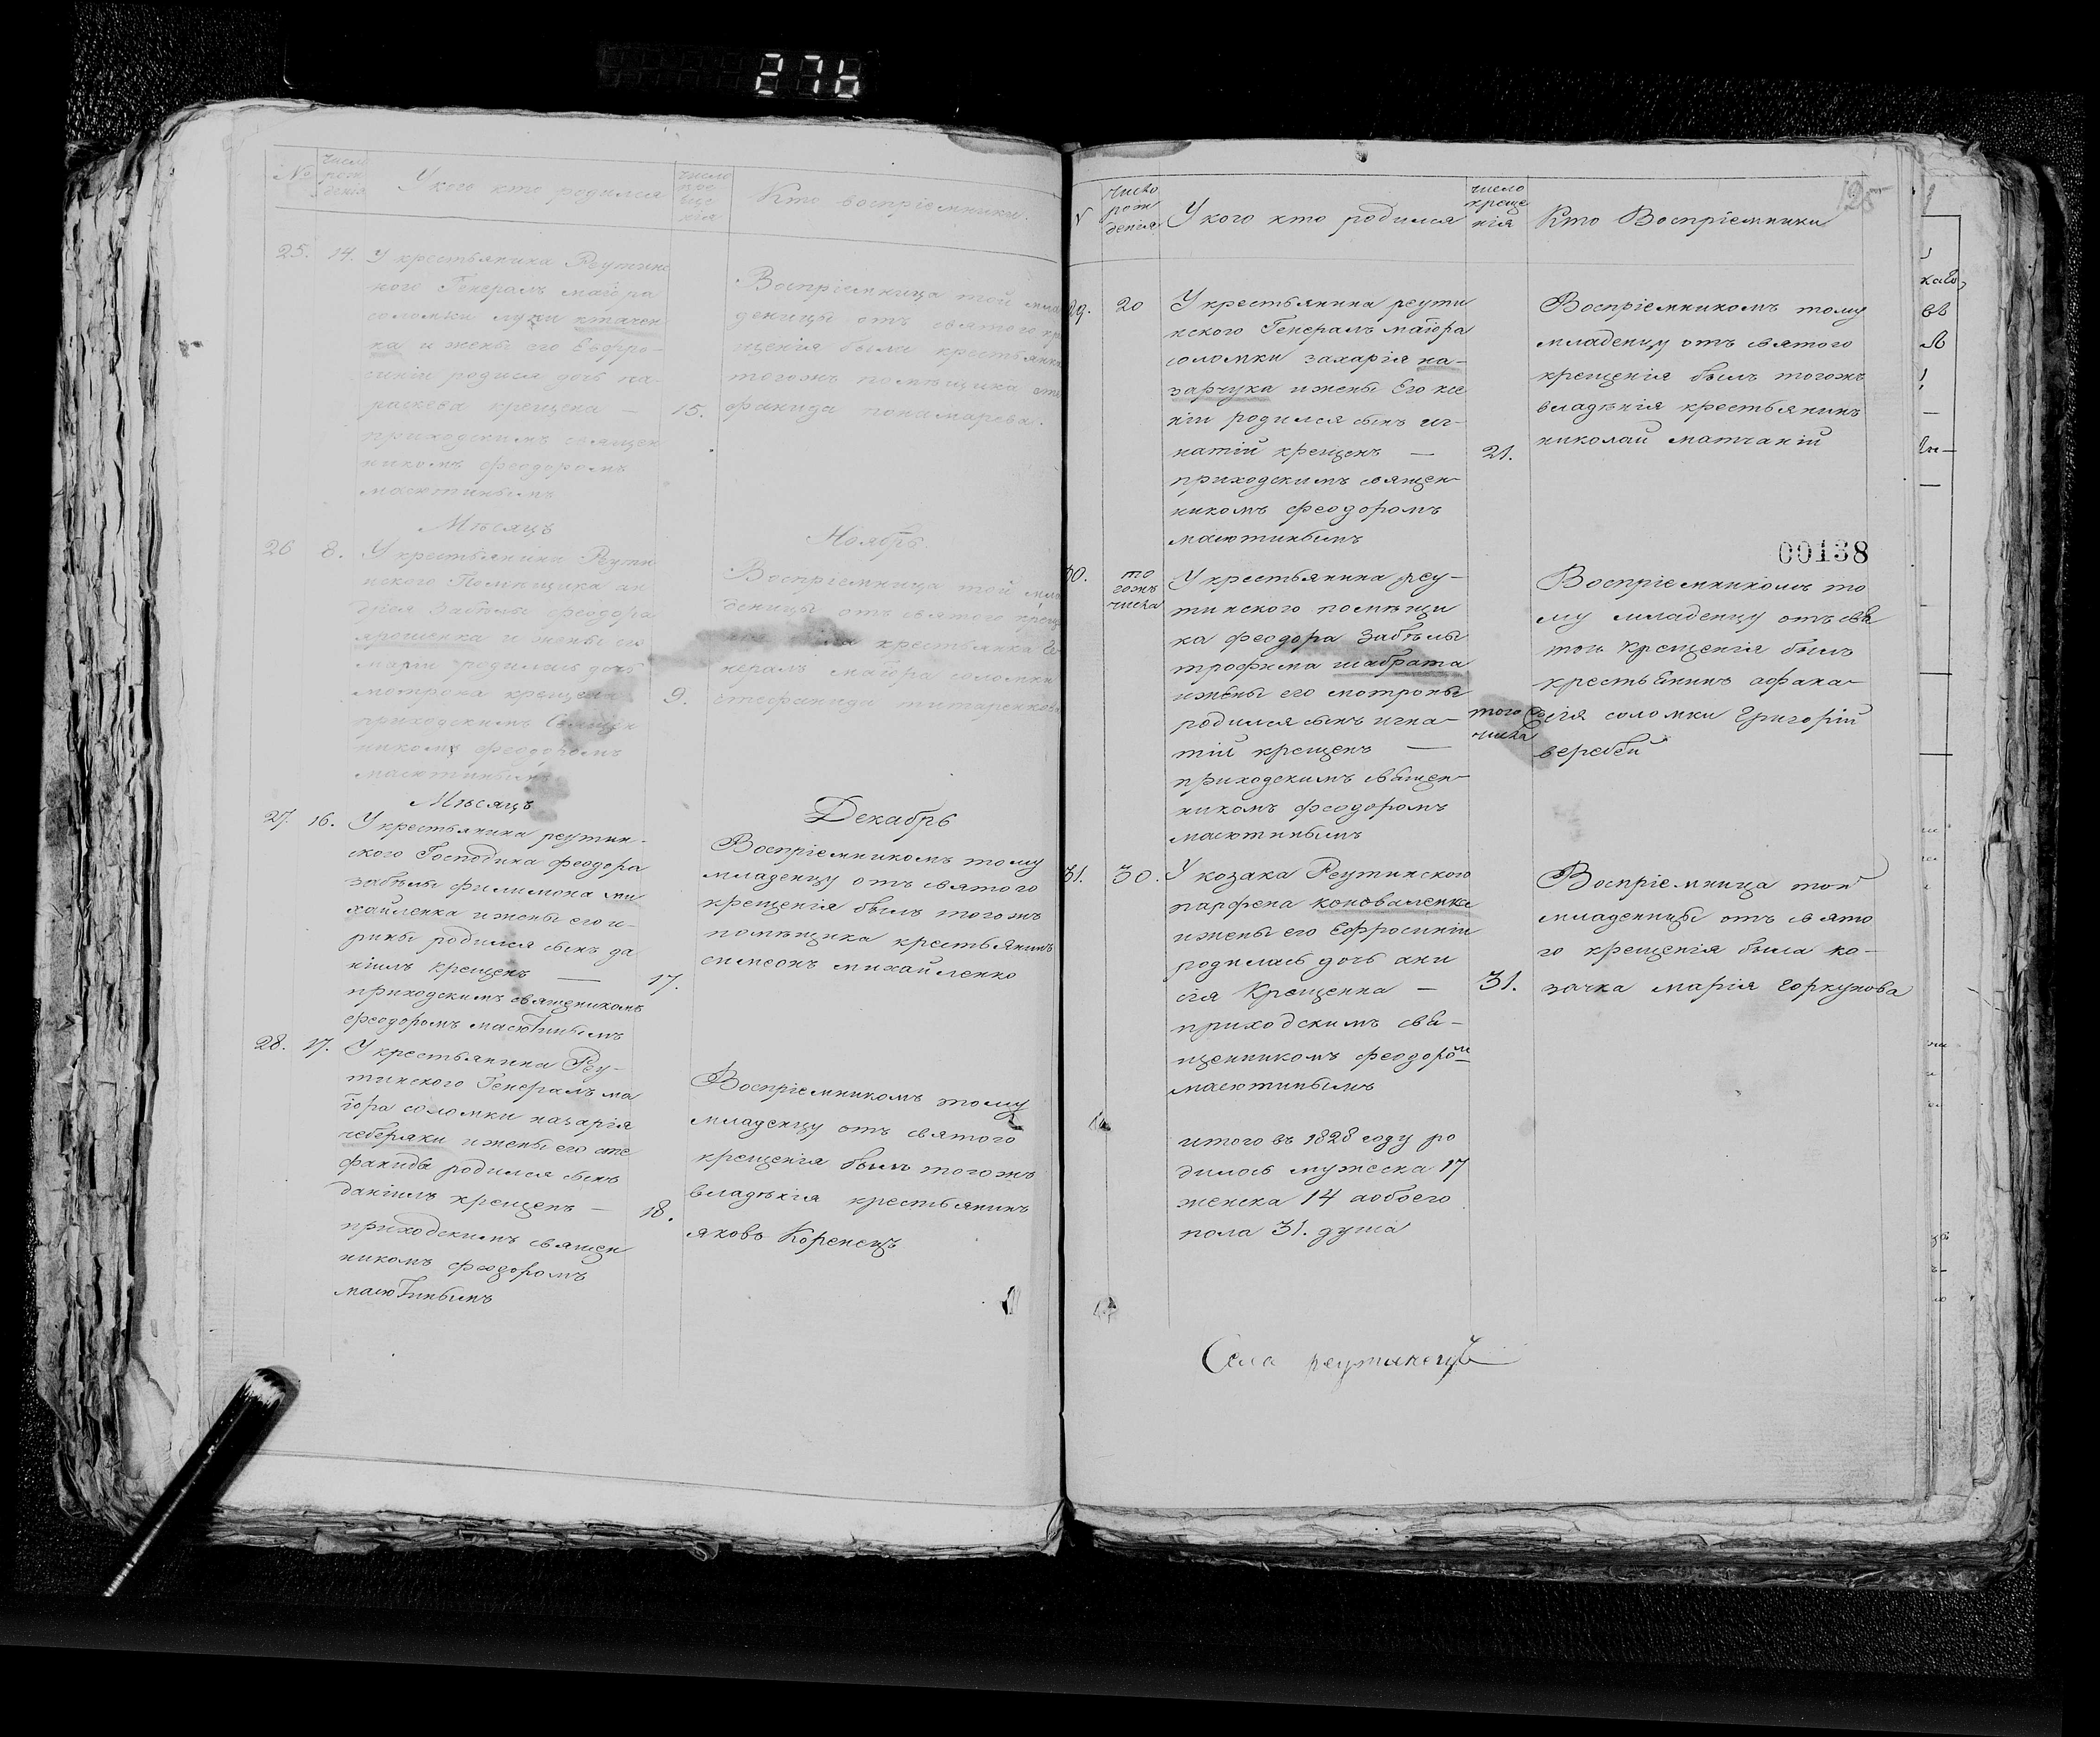 276
№
Число
рож
дения
У кого кто родился
число
кре
ще
нія
Кто воспріемники.
25.
14.
У крестьянина Реутинс
кого Генералъ маіора
соломки луки ктачен
ка и жены его Ефро-
синіи родися дочь па-
раскева крещена —
приходскимъ священ
никомъ феодоромъ
масютинымъ
15.
Воспріемница той мла
деницы отъ святого кре
щенія была крестьянка
тогожъ помѣщика сте
фанида понамарева.
Мѣсяцъ
Ноябрь
26
8.
У крестьянина Реути
нского Помѣщика ан
дрея Забѣлы феодора
ярошенка и жены его
маріи родилась дочь
мотрона крещена
приходскимъ священ
никомъ феодоромъ
масютинымъ
9.
Воспріемница той мла
деницы отъ святого крещ
крестьянка Ге
нералъ маіора соломки
стефанида титаренкова
Мѣсяцъ
Декабрь
27.
16.
У крестьянина реутин-
ского Господина феодора
забѣлы филимона ми
хайленка и жены его и-
рины родился сынъ да
ніилъ крещенъ —
приходскимъ священикомъ
феодоромъ масютинымъ
17.
Воспріемникомъ тому
младенцу отъ святого
крещенія былъ тогожъ
помѣщика крестьянинъ
симеонъ михайленко
28.
17.
У крестьянина Реу-
тинского Генералъ ма
іора соломки назарія
чеберяки и жены его сте
фаниды родился сынъ
даніилъ крещенъ —
приходскимъ священ
никомъ феодоромъ
масютинымъ
18.
Воспріемникомъ тому
младенцу отъ святого
крещенія былъ тогожъ
владѣнія крестьянинъ
яковъ Коренецъ
125
N
Число
рож
денія
У кого кто родился
число
креще
нія
Кто Воспріемники
29.
20
У крестьянина реути
нского Генералъ маіора
соломки захарія на-
зарчука и жены Его ксе
ніи родился сынъ иг-
натій крещенъ —
приходскимъ священ
никомъ феодоромъ
масютинымъ
21.
Воспріемникомъ тому
младенцу отъ святого
крещенія былъ тогожъ
владѣнія крестьянинъ
николай матчаній
00138
30.
то
гожъ
числа
У крестьянина реу-
тинского помѣщи
ка феодора Забѣлы
трофима шабрата
и жены его мотроны
родился сынъ игна-
тій крещенъ —
приходскимъ священ-
никомъ феодоромъ
масютинымъ
того
числа
Воспріемникомъ то
му младенцу отъ свя
того крещенія былъ
крестьянинъ афана-
сія соломки Григорій
веребей
31.
30.
У козака Реутинского
парфена коноваленка
и жены его Ефросиніи
родилась дочь ани
сія Крещенна —
приходскимъ свя-
щенникомъ феодоромъ
масютинымъ
31.
Воспріемница той
младенницы отъ свято
го крещенія была ко-
зачка марія Горкунова
итого въ 1828 году ро
дилось мужеска 17
женска 14 а обоего
пола 31. душа
Села реутинецъ